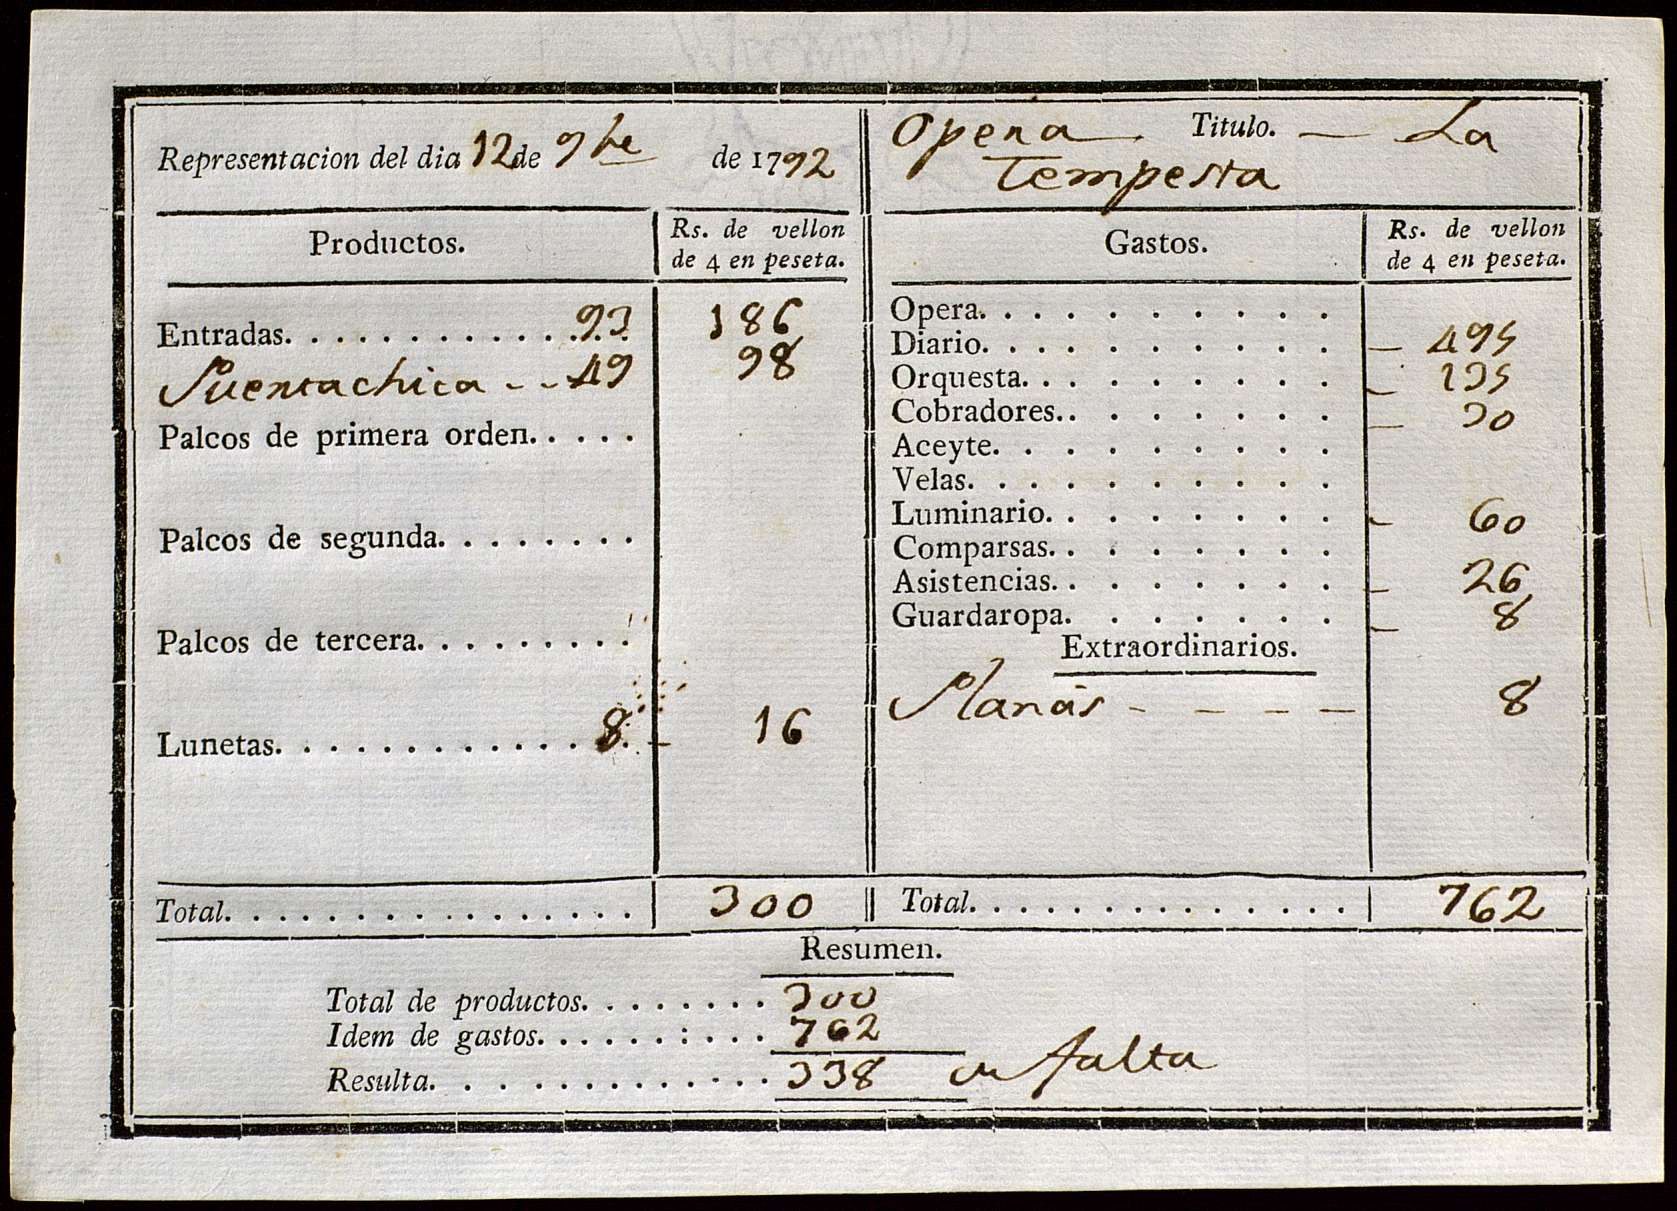 Representacion del dia 12 de 9bre de 1792
Opera Titulo. — La
Tempesta
Productos.
Rs. de vellon
de 4 en peseta.
Entradas. . . . . . . . . . . . . 93 186
Puertachica - - 49 98
Palcos de primera orden. . . . .
Palcos de segunda. . . . . . . .
Palcos de tercera. . . . . . . . .
Lunetas. . . . . . . . . . . . . . 8 — 16
Total. . . . . . . . . . . . . . . . 300
Gastos.
Rs. de vellon
de 4 en peseta.
Opera. . . . . . . . . .
Diario. . . . . . . . . . — 495
Orquesta. . . . . . . . . — 135
Cobradores. . . . . . . . — 30
Aceyte. . . . . . . . . .
Velas. . . . . . . . . . .
Luminario. . . . . . . . — 60
Comparsas. . . . . . . .
Asistencias. . . . . . . . — 26
Guardaropa. . . . . . . — 8
Extraordinarios.
Planas - - - - — 8
Total. . . . . . . . . . . . . . 762
Resumen.
Total de productos. . . . . . . . 300
Idem de gastos. . . . . . : . . . 762
Resulta. . . . . . . . . . . . . 338 en falta